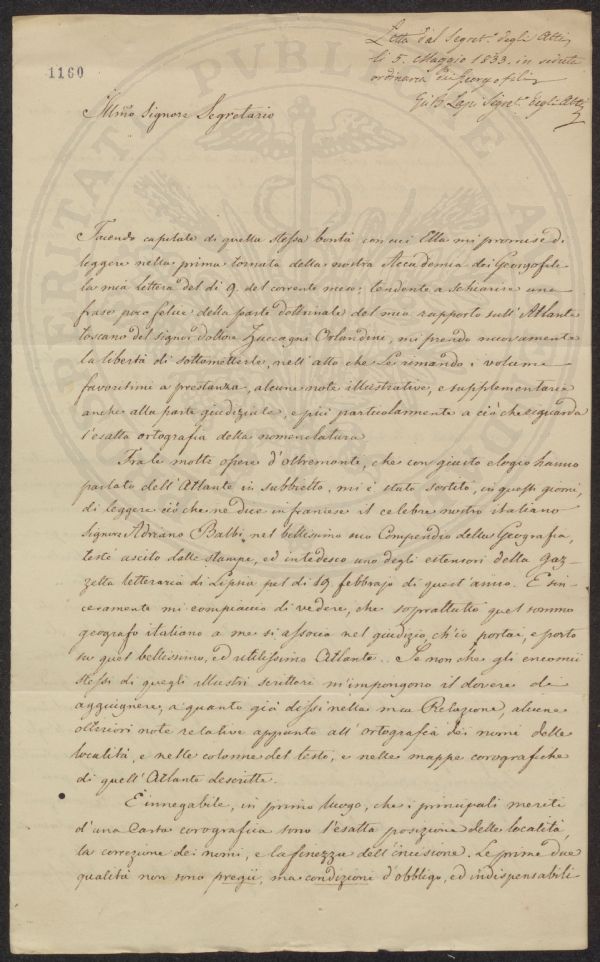 Letta dal Segret.º degli Atti
li 5. Maggio 1833. in seduta
ordinaria dei Georgofili
Gio. B. Lapi Segret.º degli Atti
1160
Illmo Signore Segretario
Facendo capitale di quella stessa bontà con cui Ella mi promise di
leggere nella prima tornata della nostra Accademia dei Georgofili
la mia lettera del dì 9. del corrente mese, tendente a schiarire una
frase poco felice della parte dottrinale del mio rapporto sull'Atlante
toscano del signor dottore Zuccagni Orlandini, mi prendo nuovamente
la libertà di sottometterle, nell'atto che Le rimando i volumi
favoritimi a prestanza, alcune note illustrative, e supplementarie
anche alla parte giudiziale, e più particolarmente a ciò che sguarda
l'esatta ortografia della nomenclatura.
Fra le molte opere d'oltremonte, che con giusto elogio hanno
parlato dell'Atlante in subbietto, mi è stato sortito, in questi giorni,
di leggere ciò che ne dice in franzese il celebre nostro italiano
Signore Adriano Balbi, nel bellissimo suo Compendio della Geografia,
testè uscito dalle stampe, ed in tedesco uno degli estensori della gaz-
zetta letteraria di Lipsia pel dì 19. febbrajo di quest'anno. E sin-
ceramente mi compiaccio di vedere, che soprattutto quel sommo
geografo italiano a me si associa nel giudizio, ch'io portai, e porto
su quel bellissimo, ed utilissimo Atlante. Se non che gli encomii
stessi di quegli illustri scrittori m'impongono il dovere di
aggiugnere, a quanto già dissi nella mia Relazione, alcune
ulteriori note relative appunto all'ortografia dei nomi delle
località, e nelle colonne del testo, e nelle mappe corografiche
di quell'Atlante descritte.
È innegabile, in primo luogo, che i principali meriti
d'una Carta corografica sono l'esatta posizione delle località,
la correzione dei nomi, e la finezza dell'incisione. Le prime due
qualità non sono pregii, ma condizioni d'obbligo, ed indispensabili